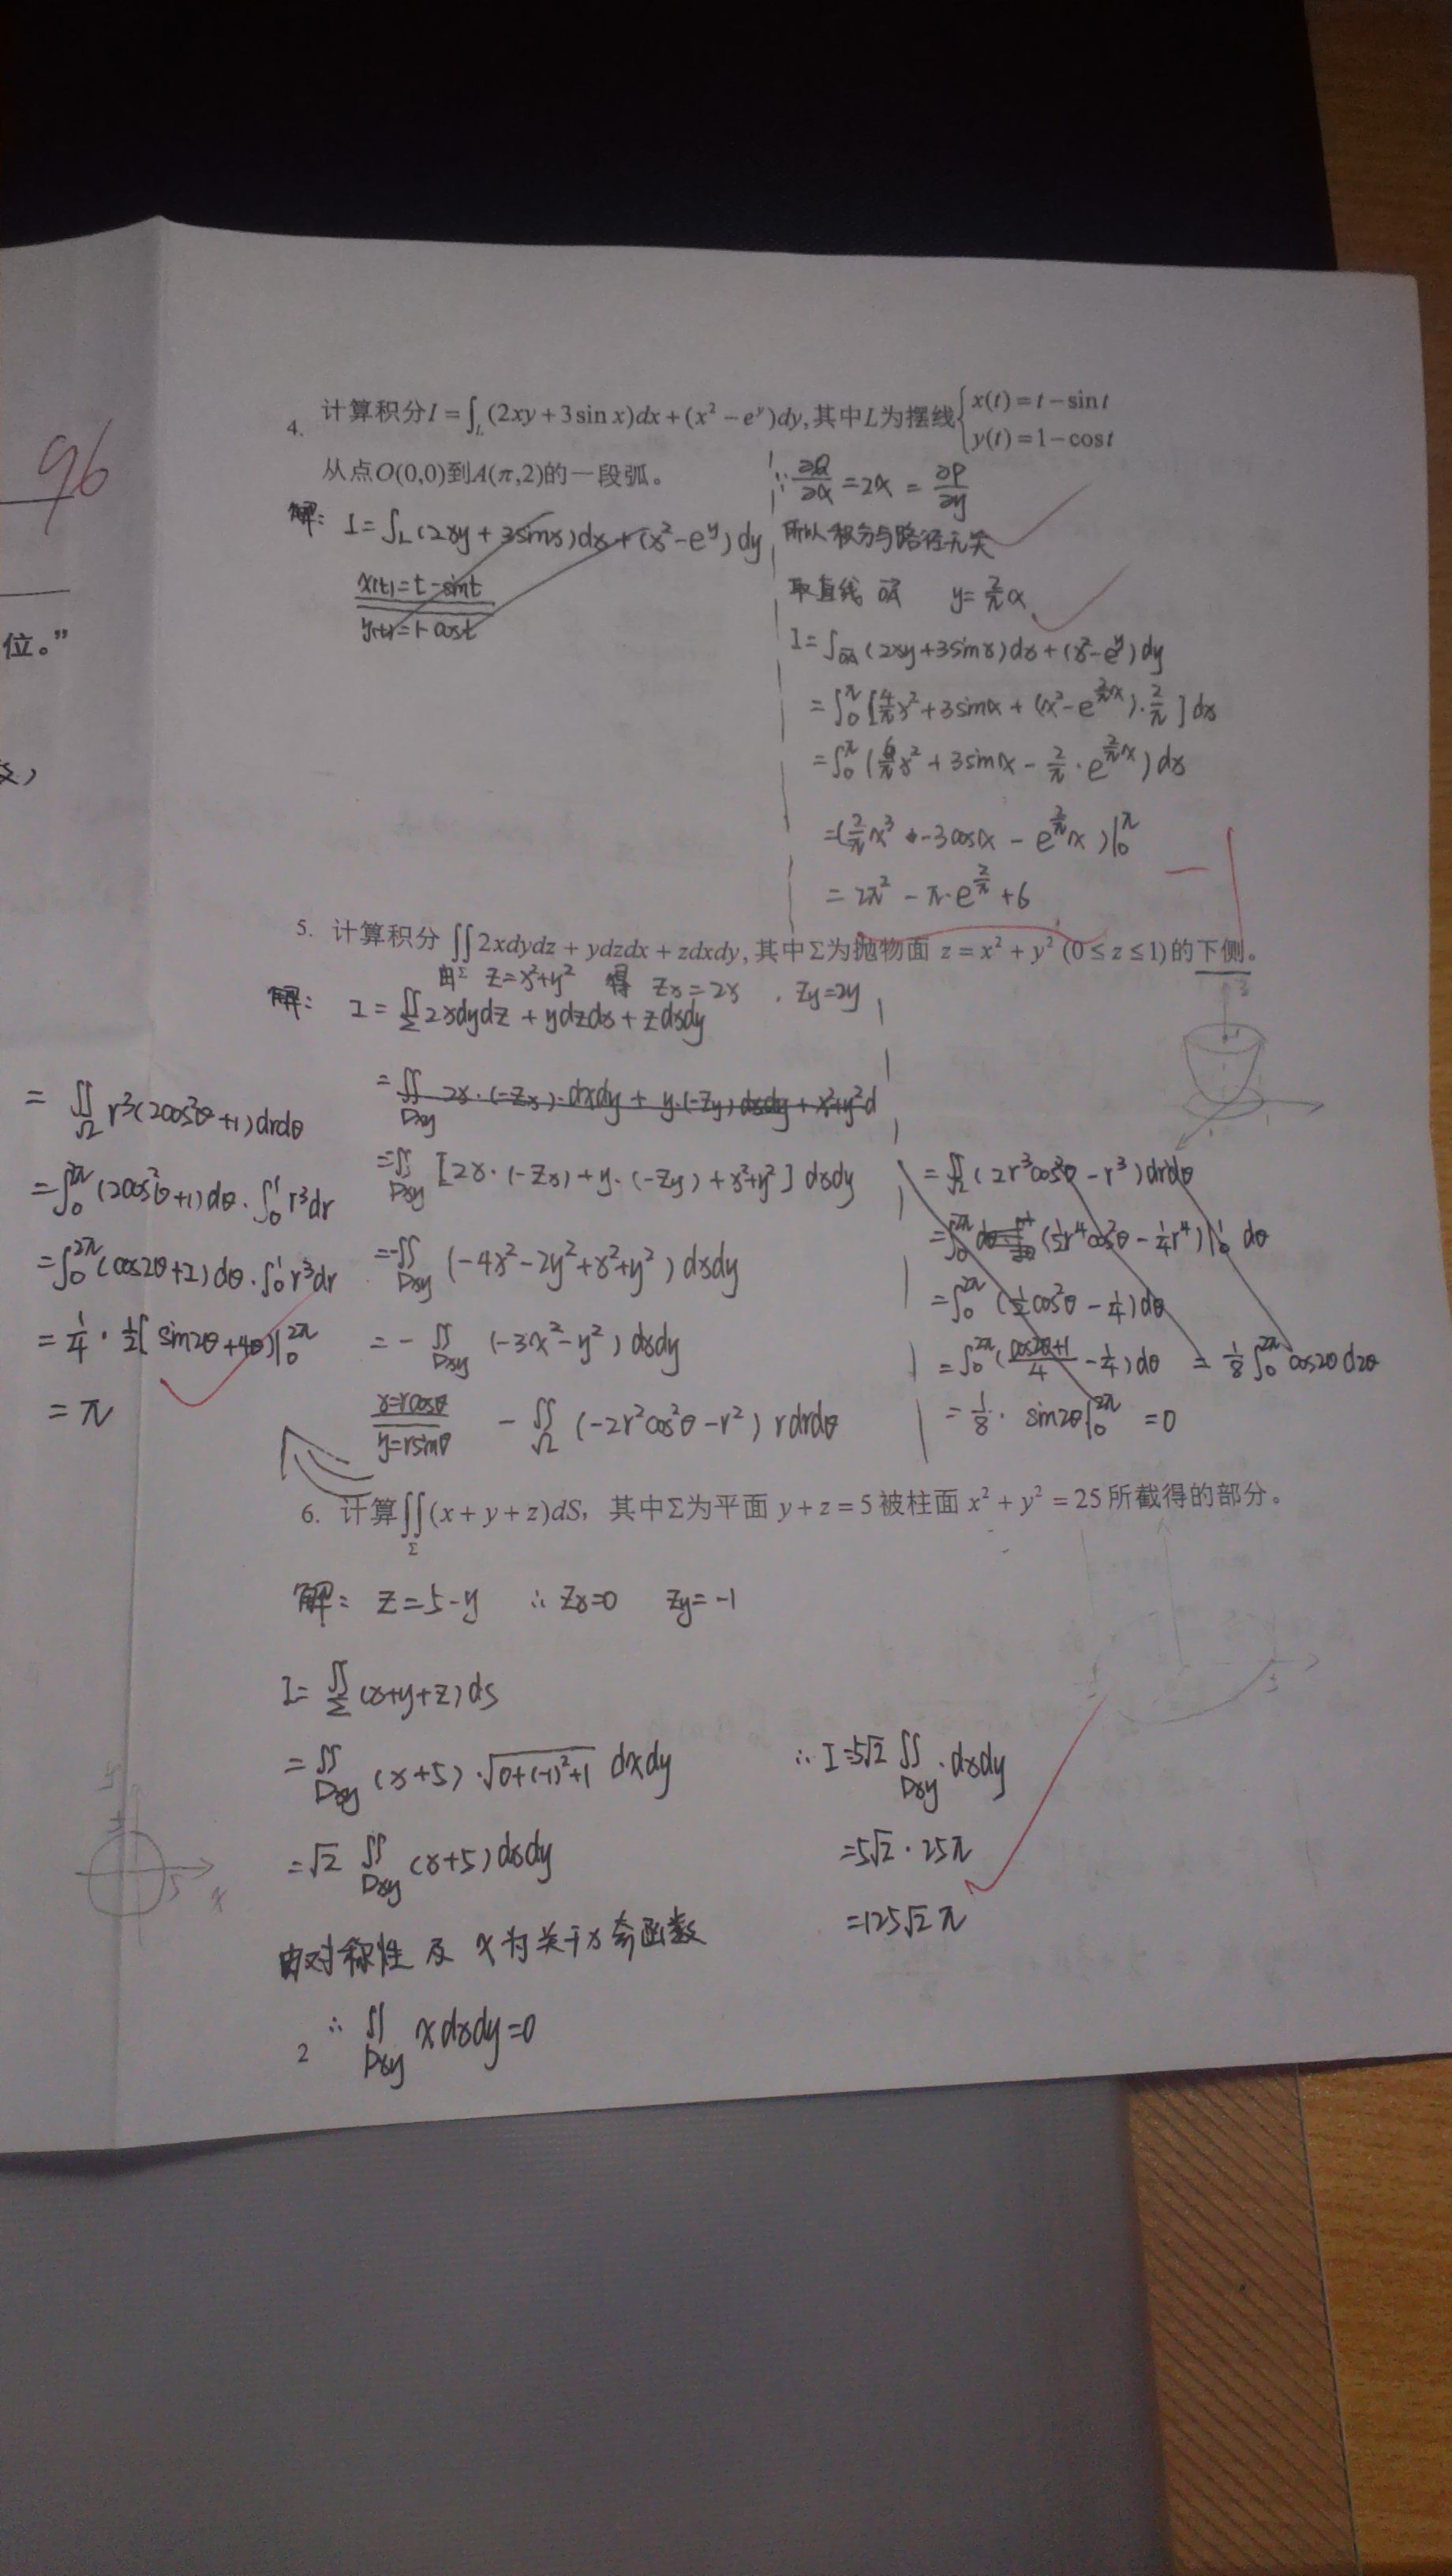 96
位。”
4. 计算积分I=∫_L(2xy+3sin x)dx+(x²-e^y)dy,其中L为摆线{x(t)=t-sin t
y(t)=1-cos t
从点O(0,0)到A(π,2)的一段弧。
解: I=∫_L(2xy+3sinx)dx+(x²-e^y)dy
x(t)=t-sint
y(t)=1-cost
∵ ∂Q/∂x=2x=∂P/∂y
所以积分与路径无关
取直线 OA y=2/π x
I=∫_OA(2xy+3sinx)dx+(x²-e^y)dy
=∫₀^π[4/π x²+3sinx+(x²-e^(2/π x))·2/π]dx
=∫₀^π(6/π x²+3sinx-2/π·e^(2/π x))dx
=(2/π x³-3cosx-e^(2/π)x)|₀^π
=2π²-π·e^(2/π)+6
5. 计算积分∬_Σ 2xdydz+ydzdx+zdxdy,其中Σ为抛物面 z=x²+y² (0≤z≤1)的下侧。
由 z=x²+y² 得 Zx=2x , Zy=2y
解: I=∬_Σ 2xdydz+ydzdx+zdxdy
=∬_Dxy 2x·(-Zx)·dxdy+y·(-Zy)dxdy+x²+y²d
=-∬_Dxy [2x·(-Zx)+y·(-Zy)+x²+y²]dxdy
=-∬_Dxy (-4x²-2y²+x²+y²)dxdy
=-∬_Dxy (-3x²-y²)dxdy
x=rcosθ
y=rsinθ
-∬_Ω(-2r²cos²θ-r²)rdrdθ
=∬_Ω(2r³cos²θ-r³)drdθ
=∫₀^2π (1/2 r⁴cos²θ-1/4 r⁴)|₀¹ dθ
=∫₀^2π(1/2 cos²θ-1/4)dθ
=∫₀^2π((cos2θ+1)/4-1/4)dθ = 1/8∫₀^2π cos2θd2θ
=1/8·sin2θ|₀^2π=0
=∬_Ω r³(2cos²θ+1)drdθ
=∫₀^2π(2cos²θ+1)dθ·∫₀¹r³dr
=∫₀^2π(cos2θ+2)dθ·∫₀¹r³dr
=1/4·1/2[sin2θ+4θ)|₀^2π
=π
6. 计算∬_Σ(x+y+z)dS, 其中Σ为平面 y+z=5 被柱面 x²+y²=25 所截得的部分。
解: z=5-y ∴Zx=0 Zy=-1
I=∬_Σ(x+y+z)ds
=∬_Dxy(x+5)·√(0+(-1)²+1) dxdy
=√2∬_Dxy(x+5)dxdy
由对称性及 x为关于x奇函数
∴∬_Dxy xdxdy=0
∴I=5√2∬_Dxy·dxdy
=5√2·25π
=125√2π
2